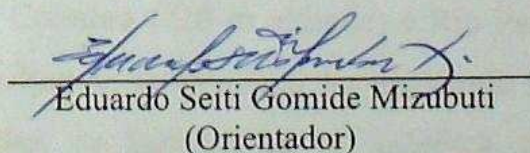 Eduardo Seiti Gomide Mizubuti
(Orientador)